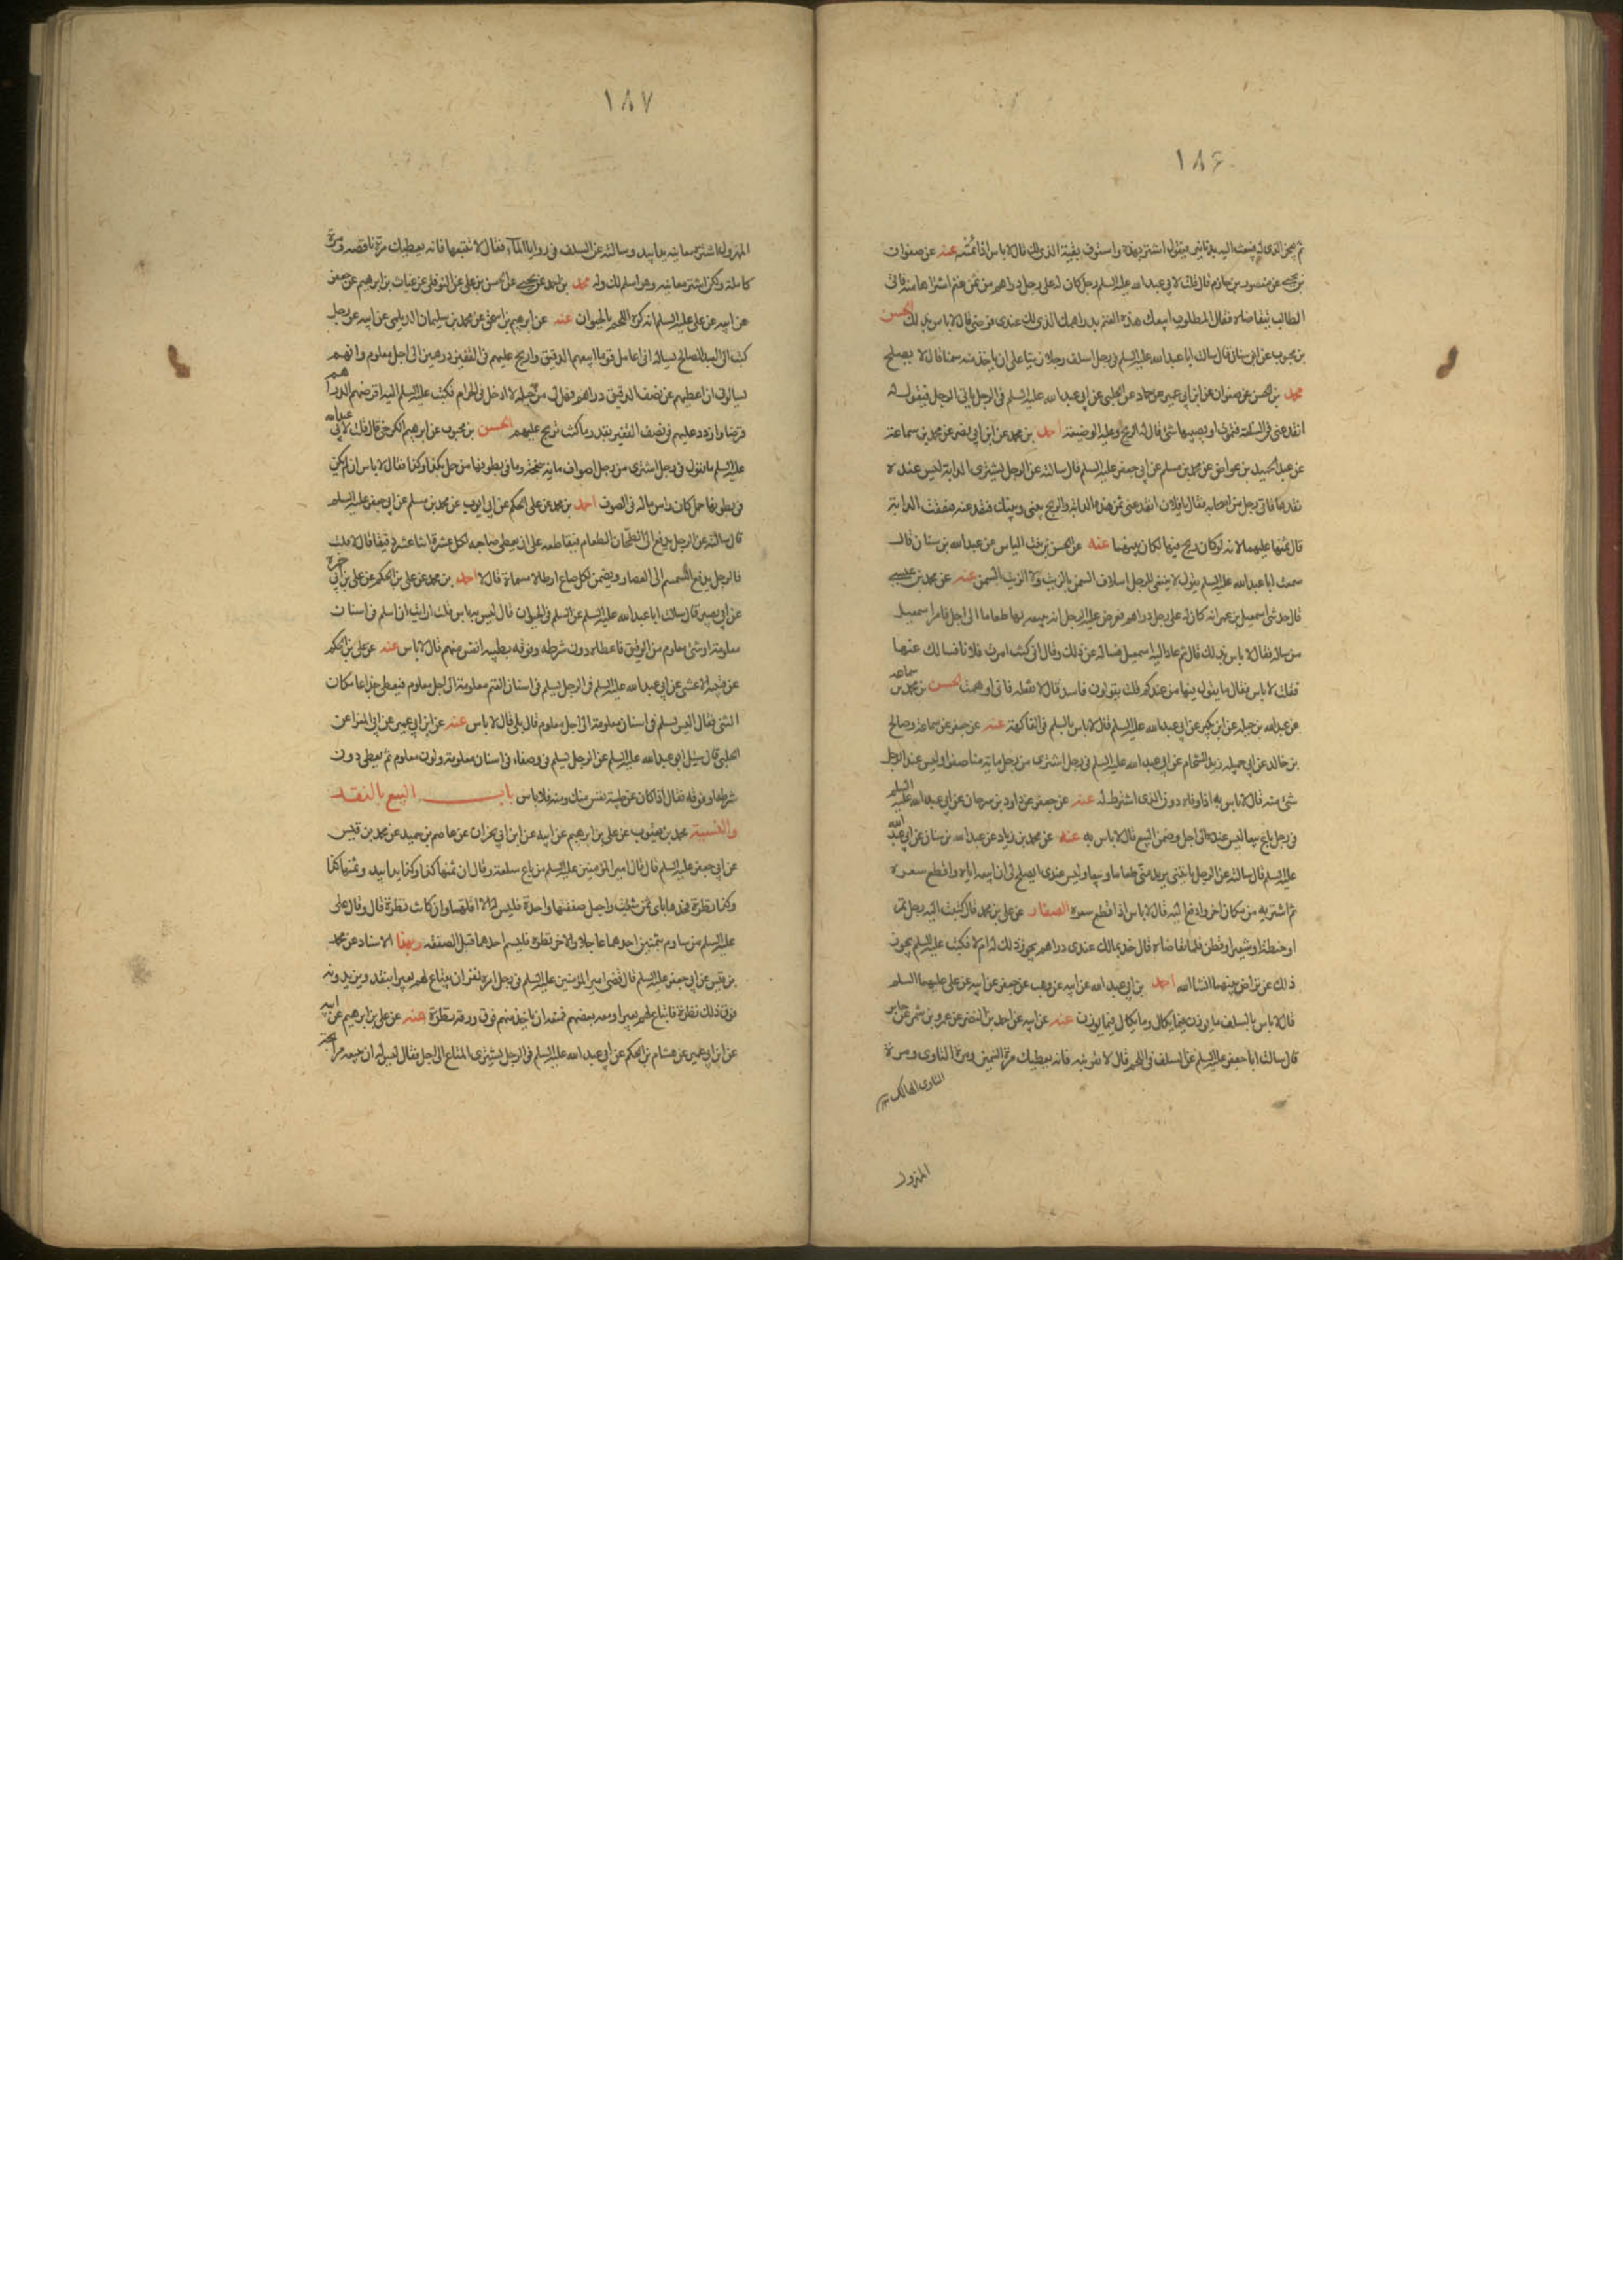 ١٨۶
ثم يجئ الذي له فيبعث اليه بدنانير فيقول اشتر بهذه واستوف بقية الذي لك قال لا باس اذا ائتمنه عنه عن صفوان
بن يحيى عن منصور بن حازم قال قلت لابي عبد الله عليه السلم رجل كان له على رجل دراهم من ثمن غنم اشتراها منه فاتى
الطالب يتقاضاه فقال المطلوب ابيعك هذه الغنم بدراهمك الذي لك عندي فرضي قال لا باس بذلك الحسن
بن محبوب عن ابن سنان قال سالت ابا عبد الله عليه السلم في رجل اسلف رجلا زيتا على ان ياخذ منه سمنا قال لا يصلح
محمد بن الحسن عن صفوان عن ابن ابي عمير عن حماد عن الحلبي عن ابي عبد الله عليه السلم في الرجل ياتي الرجل فيقول له
انقد عني في السلعة فتموت او يصيبها شئ قال له الربح وعليه الوضيعة احمد بن محمد عن ابن ابي نصر عن محمد بن سماعة
عن عبد الحميد بن عواض عن محمد بن مسلم عن ابي جعفر عليه السلم قال سالته عن الرجل يشتري الدابة ليس عنده
نقدها فاتى رجل من اصحابه فقال يا فلان انقد عني ثمن هذه الدابة والربح بيني وبينك فنقد عنه فنفقت الدابة
قال ثمنها عليهما لانه لو كان ربح فيها لكان بينهما عنه عن الحسن بن بنت الياس عن عبد الله بن سنان قال
سمعت ابا عبد الله عليه السلم يقول لا ينبغي للرجل اسلاف السمن بالزيت ولا الزيت بالسمن عنه عن محمد بن عيسى
قال حدثني اسمعيل بن عمر انه كان له على رجل دراهم فعرض عليه الرجل انه يبيعه بها طعاما الى اجل فامر اسمعيل
من ساله فقال لا باس بذلك قال ثم عاد اليه اسمعيل فساله عن ذلك وقال اني كنت امرت فلانا فسالك عنها
فقلت لا باس فقال ما يقول فيها من عندكم قلت يقولون فاسد قال لا تفعله فاني اوهمت الحسن بن محمد بن سماعة
عن عبد الله بن جبله عن ابن بكير عن ابي عبد الله عليه السلم قال لا باس بالسلم في الفاكهة عنه عن جعفر عن سماعة وصالح
بن خالد عن ابي جميله زيد الشحام عن ابي عبد الله عليه السلم في رجل اشترى من رجل ماية منا صفرا وليس عند الرجل
شئ منه قال لا باس به اذا اوفاه دون الذي اشترط له عنه عن جعفر عن داود بن سرحان عن ابي عبد الله عليه السلم
في رجل باع بيعا ليس عنده الى اجل وضمن البيع قال لا باس به عنه عن محمد بن زياد عن عبد الله بن سنان عن ابي عبد الله
عليه السلم قال سالته عن الرجل ياتيني يريد مني طعاما وبيعا وليس عندي ايصلح لي ان ابيعه اياه واقطع سعره
ثم اشتريه من مكان اخر وادفع اليه قال لا باس اذا قطع سعره الصفار عن علي بن محمد قال كتبت اليه رجل
او حنطة او شعير او قطن فلما تقاضاه قال خذ بمالك عندي دراهم يجوز ذلك له ام لا فكتب عليه السلم يجوز
ذلك عن تراض بينهما انشا الله احمد بن ابي عبد الله عن ابيه عن وهب عن جعفر عن ابيه عن علي عليهما السلم
قال لا باس بالسلف ما يوزن فيما يكال وما يكال فيما يوزن عنه عن ابيه عن احمد بن النضر عن عمرو بن شمر عن جابر
قال سالت ابا جعفر عليه السلم عن السلف في اللحم قال لا تقربنه فانه يعطيك مرة السمين ومرة التاوي ومرة
التاوي الهالك
المهزول
١٨٧
المهزول اشتر معاينة يدا بيد وسالته عن السلف في روايا الماء فقال لا تقبعها فانه يعطيك مرة ناقصه ومرة
كاملة ولكن اشتر معاينه وهو اسلم لك وله محمد بن احمد بن يحيى عن الحسن بن علي عن النوفلي عن غياث بن ابرهيم عن جعفر
عن ابيه عن علي عليه السلم انه كره اللحم بالحيوان عنه عن ابرهيم بن اسحق عن محمد بن سليمان الديلمي عن ابيه عن رجل
كتب الى العبد الصالح يساله اني اعامل قوما ابيعهم الدقيق واربح عليهم في القفيز درهمين الى اجل معلوم وانهم
يسالوني ان اعطيهم عن نصف الدقيق دراهم فهل لي من حيلة لا ادخل في الحرام فكتب عليه السلم اليه اقرضهم الدراهم
قرضا وازدد عليهم في نصف القفيز بقدر ما كنت تربح عليهم الحسن بن محبوب عن ابرهيم الكرخي قال قلت لابي عبد الله
عليه السلم ما تقول في رجل اشترى من رجل اصواف ماية نعجة وما في بطونها من حمل بكذا وكذا فقال لا باس ان لم يكن
في بطونها حمل كان راس ماله في الصوف احمد بن محمد عن علي بن الحكم عن ابي ايوب عن محمد بن مسلم عن ابي جعفر عليه السلم
قال سالته عن الرجل يدفع الى الطحان الطعام فيقاطعه على ان يعطي صاحبه لكل عشرة اثنا عشر دقيقا قال لا قلت
فالرجل يدفع السمسم الى العصار ويضمن لكل صاع ارطالا مسماة قال لا احمد بن محمد عن علي بن الحكم عن علي بن ابي حمزة
عن ابي بصير قال سالت ابا عبد الله عليه السلم عن السلم في الحيوان قال ليس به باس قلت ارايت ان اسلم في اسنان
معلومة او شئ معلوم من الرقيق فاعطاه دون شرطه وفوقه بطيبه انفس منهم قال لا باس عنه عن علي بن الحكم
عن قتيبة الاعشى عن ابي عبد الله عليه السلم في الرجل يسلم في اسنان الغنم معلومة الى اجل معلوم فيعطي جذاعا مكان
الثني فقال اليس يسلم في اسنان معلومة الى اجل معلوم قال بلى قال لا باس عنه عن ابن ابي عمير عن ابي المغرا عن
الحلبي قال سئل ابو عبد الله عليه السلم عن الرجل يسلم في وصفاء في اسنان معلومة ولون معلوم ثم يعطي دون
شرطه او فوقه فقال اذا كان عن طيبة نفس منك ومنه فلا باس باب البيع بالنقد
والنسيئة محمد بن يعقوب عن علي بن ابرهيم عن ابيه عن ابن ابي نجران عن عاصم بن حميد عن محمد بن قيس
عن ابي جعفر عليه السلم قال قال امير المؤمنين عليه السلم من باع سلعة وقال ان ثمنها كذا وكذا يدا بيد وثمنها كذا
وكذا نظرة فخذها باي ثمن شئت واجعل صفقتها واحدة فليس له الا اقلهما وان كانت نظرة قال وقال علي
عليه السلم من ساوم بثمنين احدهما عاجلا والاخر نظرة فليسم احدهما قبل الصفقه وبهذا الاسناد عن محمد
بن قيس عن ابي جعفر عليه السلم قال قضى امير المؤمنين عليه السلم في رجل امره نفر ان يبتاع لهم بعيرا بنقد ويزيدونه
فوق ذلك نظرة فابتاع لهم بعيرا ومعه بعضهم فمنعه ان ياخذ منهم فوق ورقه نظرة عنه عن علي بن ابرهيم عن ابيه
عن ابن ابي عمير عن هشام بن الحكم عن ابي عبد الله عليه السلم في الرجل يشتري المتاع الى اجل فقال ليس له ان يبيعه مرابحة